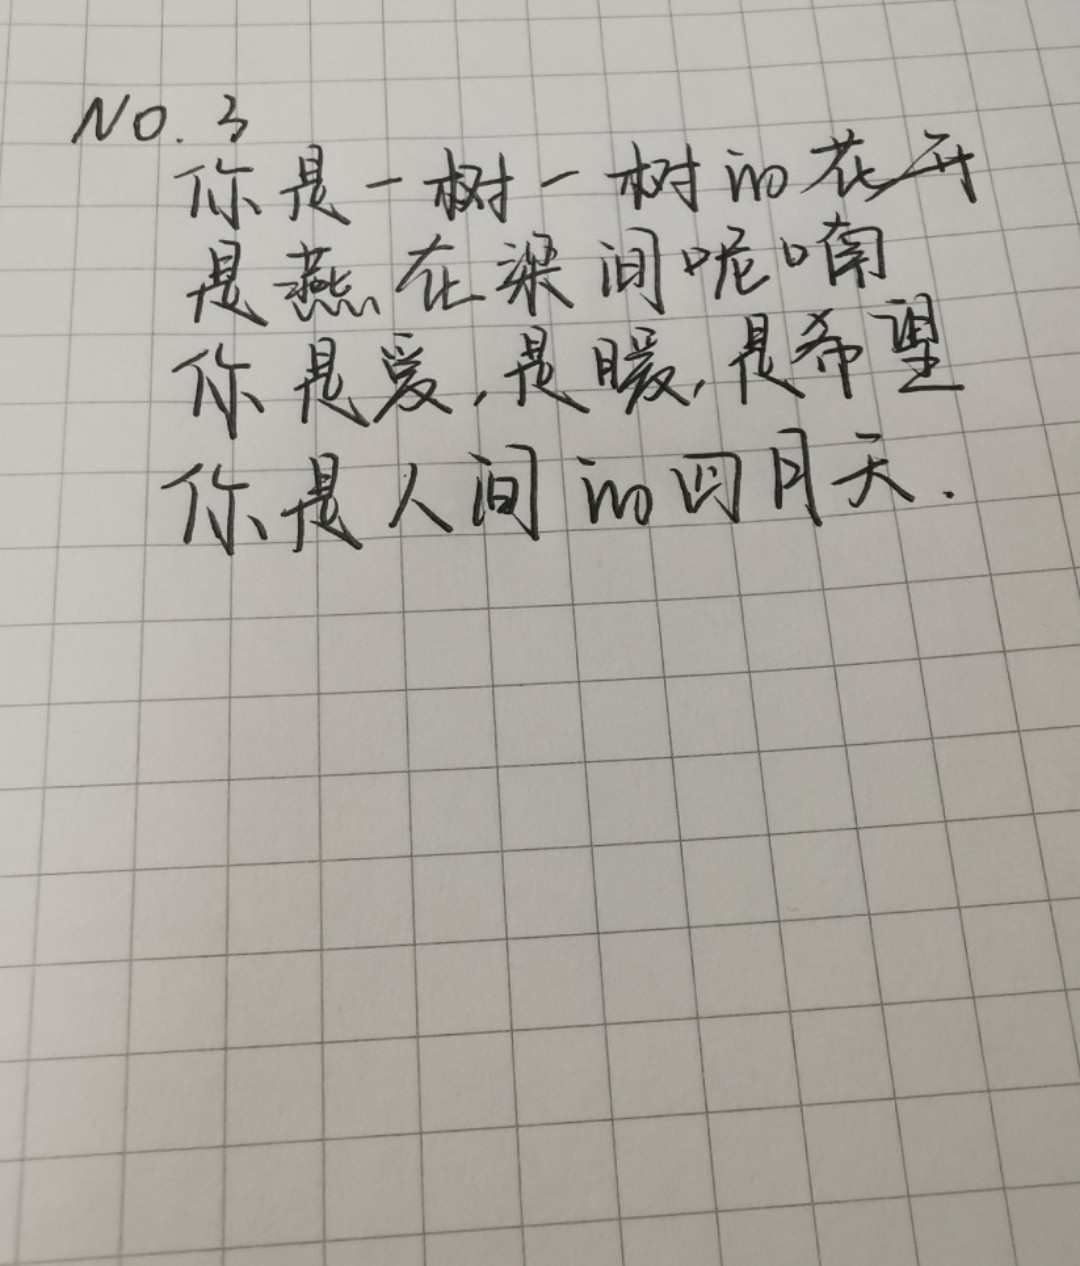 NO. 3
你是一树一树的花开
是燕在梁间呢喃
你是爱,是暖,是希望
你是人间的四月天.